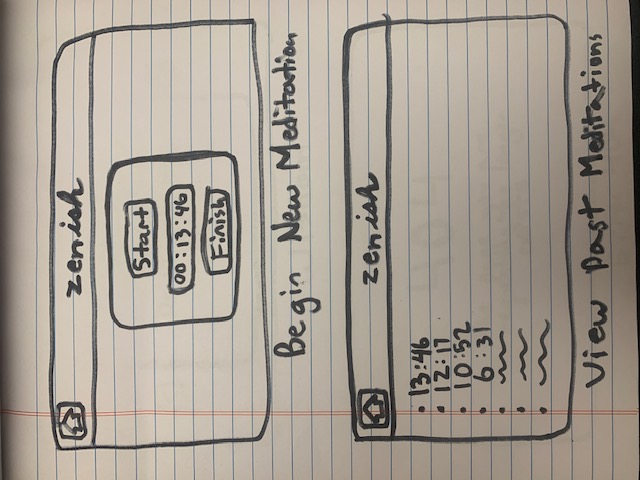 zenish
Start
00:13:46
Finish
Begin New Meditation
zenish
13:46
12:17
10:52
6:31
View Past Meditations